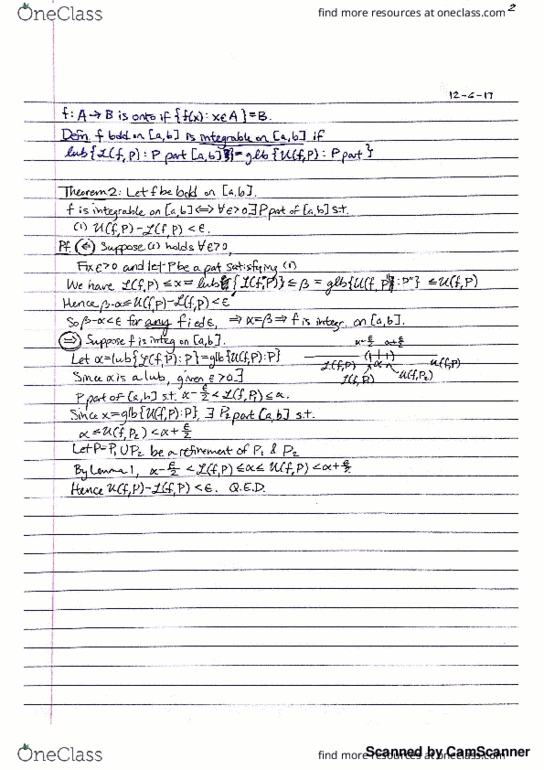 OneClass
find more resources at oneclass.com
2
12-6-17
f: A → B is onto if {f(x): x∈A} = B.
Defn. f bdd on [a,b] is integrable on [a,b] if
lub{L(f,P): P part [a,b]} = glb{U(f,P): P part}
Theorem 2: Let f be bdd on [a,b].
f is integrable on [a,b] ⟺ ∀ε>0 ∃ P part of [a,b] s.t.
(1) U(f,P) - L(f,P) < ε.
Pf (⇐) Suppose (1) holds ∀ε>0,
Fix ε>0 and let P be a part satisfying (1)
We have L(f,P) ≤ α = lub{L(f,P)} ≤ β = glb{U(f,P): P"} ≤ U(f,P)
Hence β-α ≤ U(f,P) - L(f,P) < ε
So β-α<ε for any fixed ε, ⇒ α=β ⇒ f is integ. on [a,b].
(⇒) Suppose f is integ on [a,b].
α-ε/2 α+ε/2
Let α = lub{L(f,P): P} = glb{U(f,P): P}
L(f,P₁) α U(f,P)
Since α is a lub, given ε>0 ∃
L(f,P) U(f,P₂)
P part of [a,b] s.t. α-ε/2 < L(f,P₁) ≤ α.
Since α = glb{U(f,P): P}, ∃ P₂ part [a,b] s.t.
α ≤ U(f,P₂) < α+ε/2
Let P = P₁ ∪ P₂ be a refinement of P₁ & P₂
By Lemma 1, α-ε/2 < L(f,P) ≤ α ≤ U(f,P) < α+ε/2
Hence U(f,P) - L(f,P) < ε. Q.E.D.
OneClass
find more resources at oneclass.com
Scanned by CamScanner